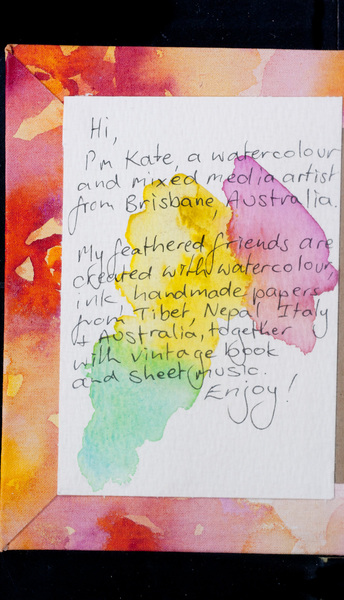 Hi,
I'm Kate, a watercolour
and mixed media artist
from Brisbane, Australia.
My feathered friends are
created with watercolour,
ink, handmade papers
from Tibet, Nepal Italy
+ Australia, together
with vintage book
and sheet music.
Enjoy!